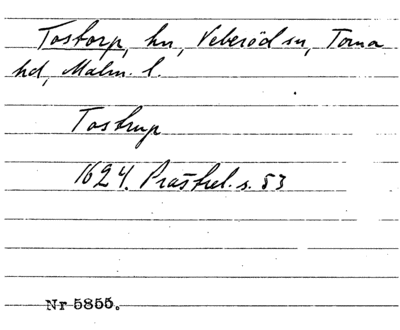 Tostorp, hn, Veberöd sn, Torna
hd, Malm. l.
Tostrup
1624. Prästrel. s. 53
Nr 5855.